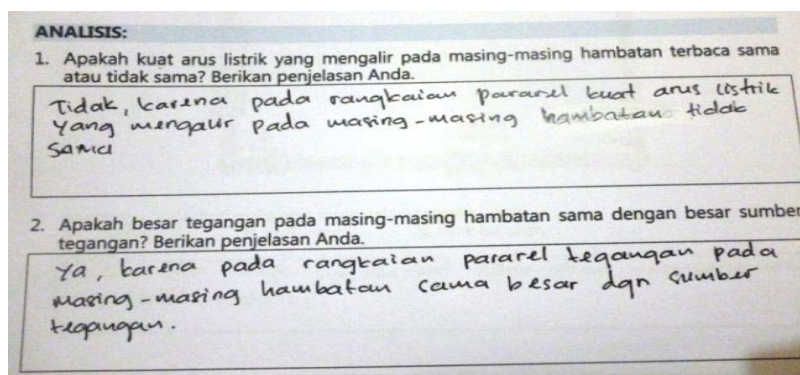 ANALISIS:
1. Apakah kuat arus listrik yang mengalir pada masing-masing hambatan terbaca sama
atau tidak sama? Berikan penjelasan Anda.
Tidak, karena pada rangkaian pararel kuat arus listrik
yang mengalir pada masing-masing hambatan tidak
sama
2. Apakah besar tegangan pada masing-masing hambatan sama dengan besar sumber
tegangan? Berikan penjelasan Anda.
Ya, karena pada rangkaian pararel tegangan pada
masing-masing hambatan sama besar dgn sumber
tegangan.